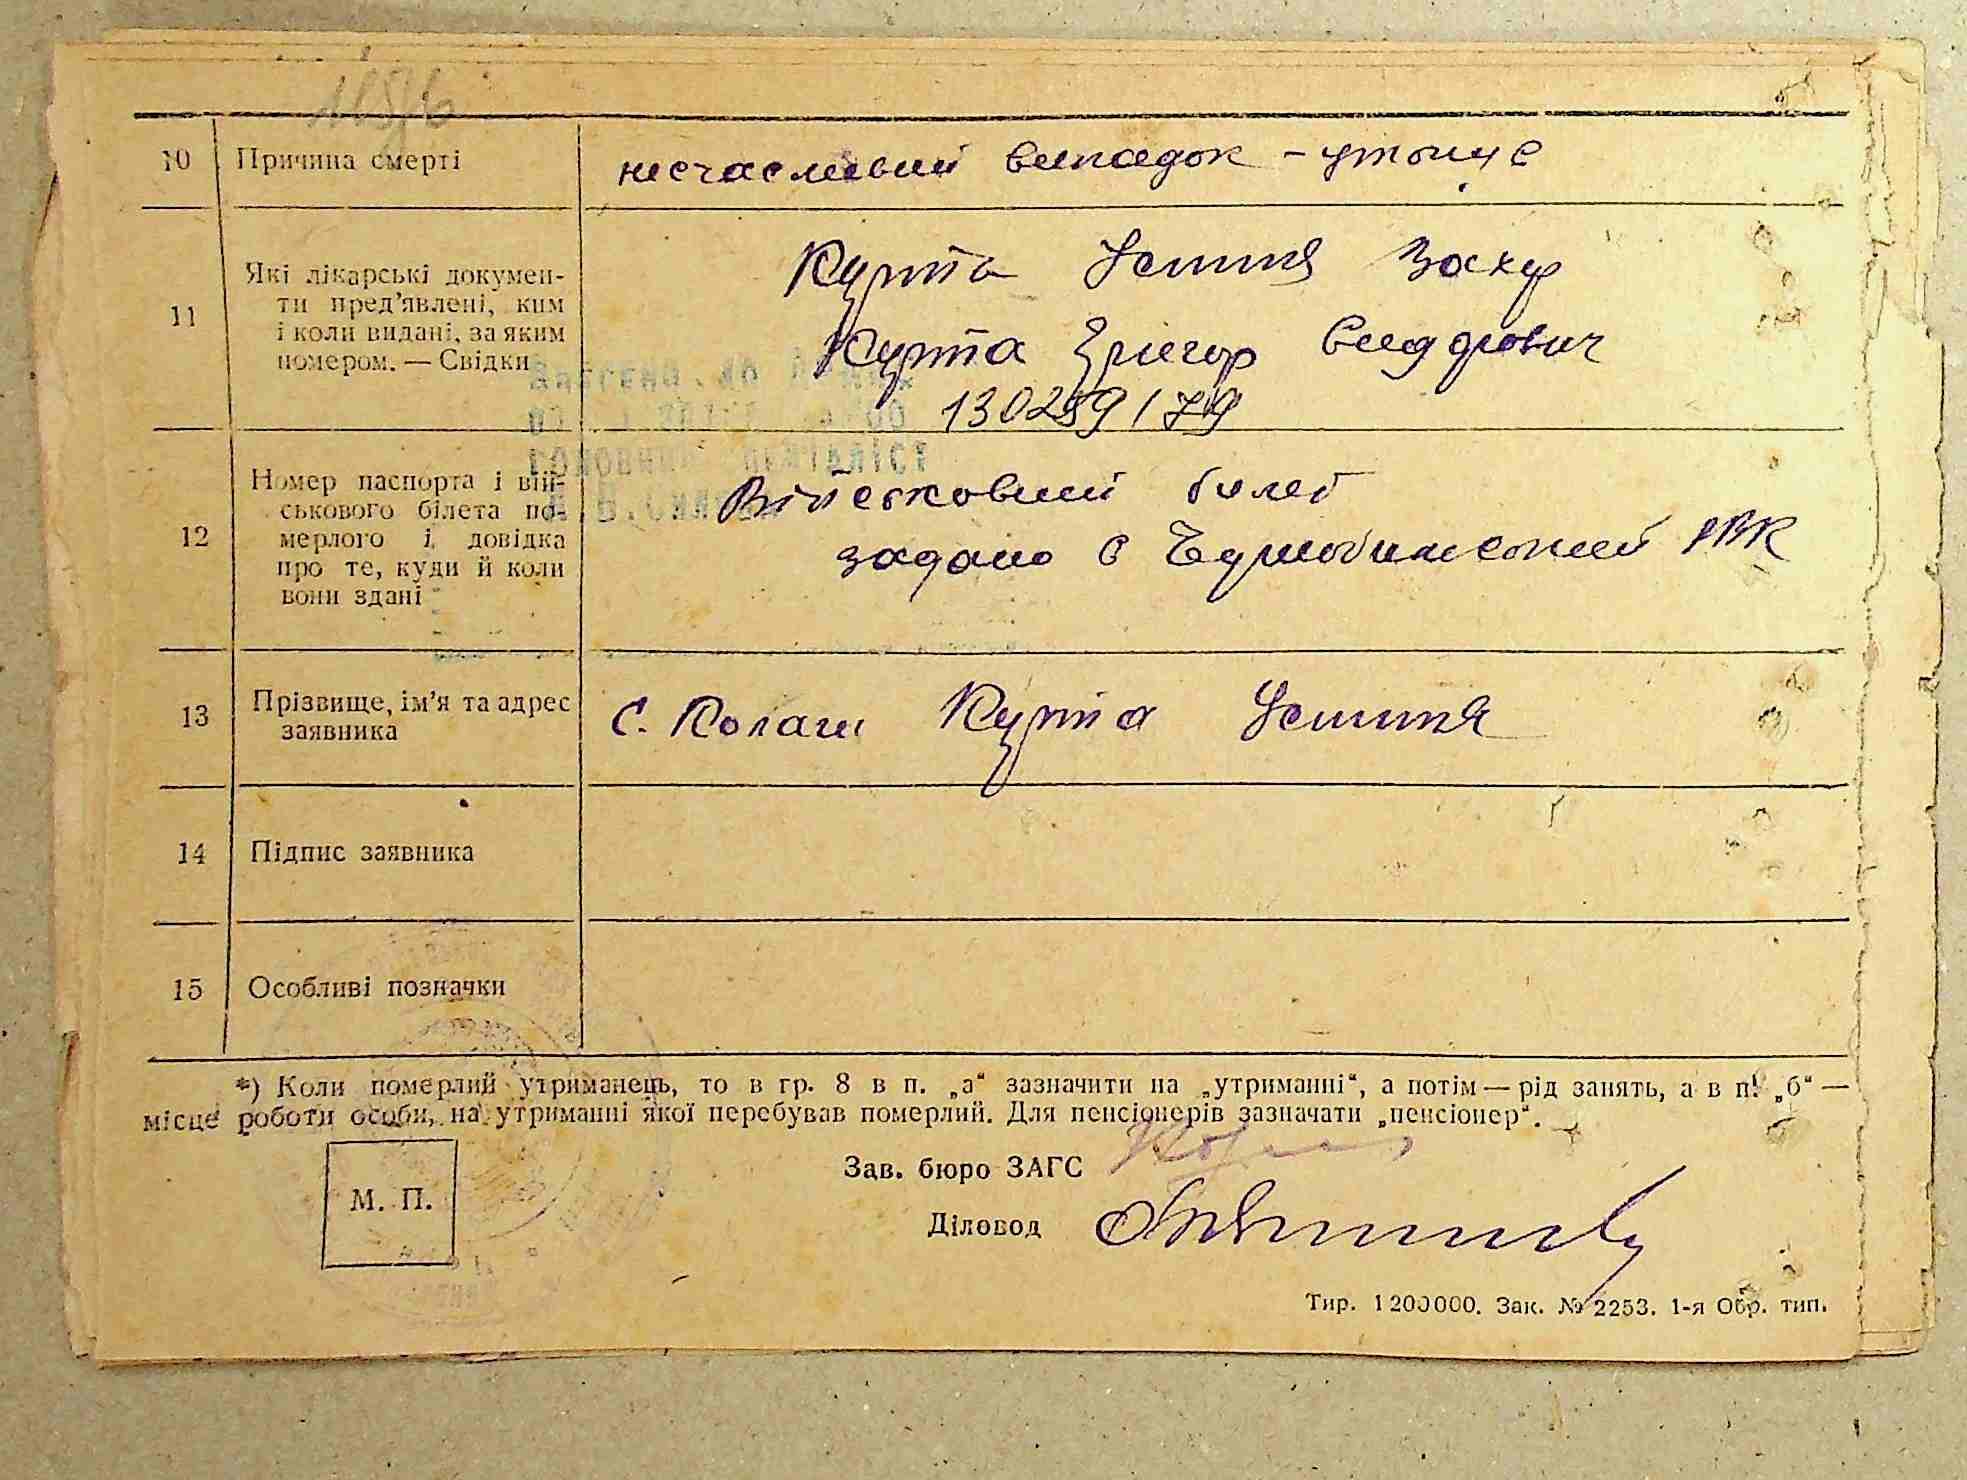 10 Причина смерті несчасливий випадок – утонув
11 Які лікарські докумен-
ти пред'явлені, ким
і коли видані, за яким
номером. — Свідки
Курта Устиня Захар
Курта Григор Сидорович
130259/79
12 Номер паспорта і вій-
ськового білета по-
мерлого і довідка
про те, куди й коли
вони здані
Військовий билет
задано в РВК
13 Прізвище, ім'я та адрес
заявника
с. Колаги Курта Устиня
14 Підпис заявника
15 Особливі позначки
*) Коли померлий утриманець, то в гр. 8 в п. „а“ зазначити на „утриманні“, а потім — рід занять, а в п. „б“ —
місце роботи особи, на утриманні якої перебував померлий. Для пенсіонерів зазначати „пенсіонер“.
М. П.
Зав. бюро ЗАГС
Діловод
Тир. 1200000. Зак. № 2253. 1-я Обр. тип.